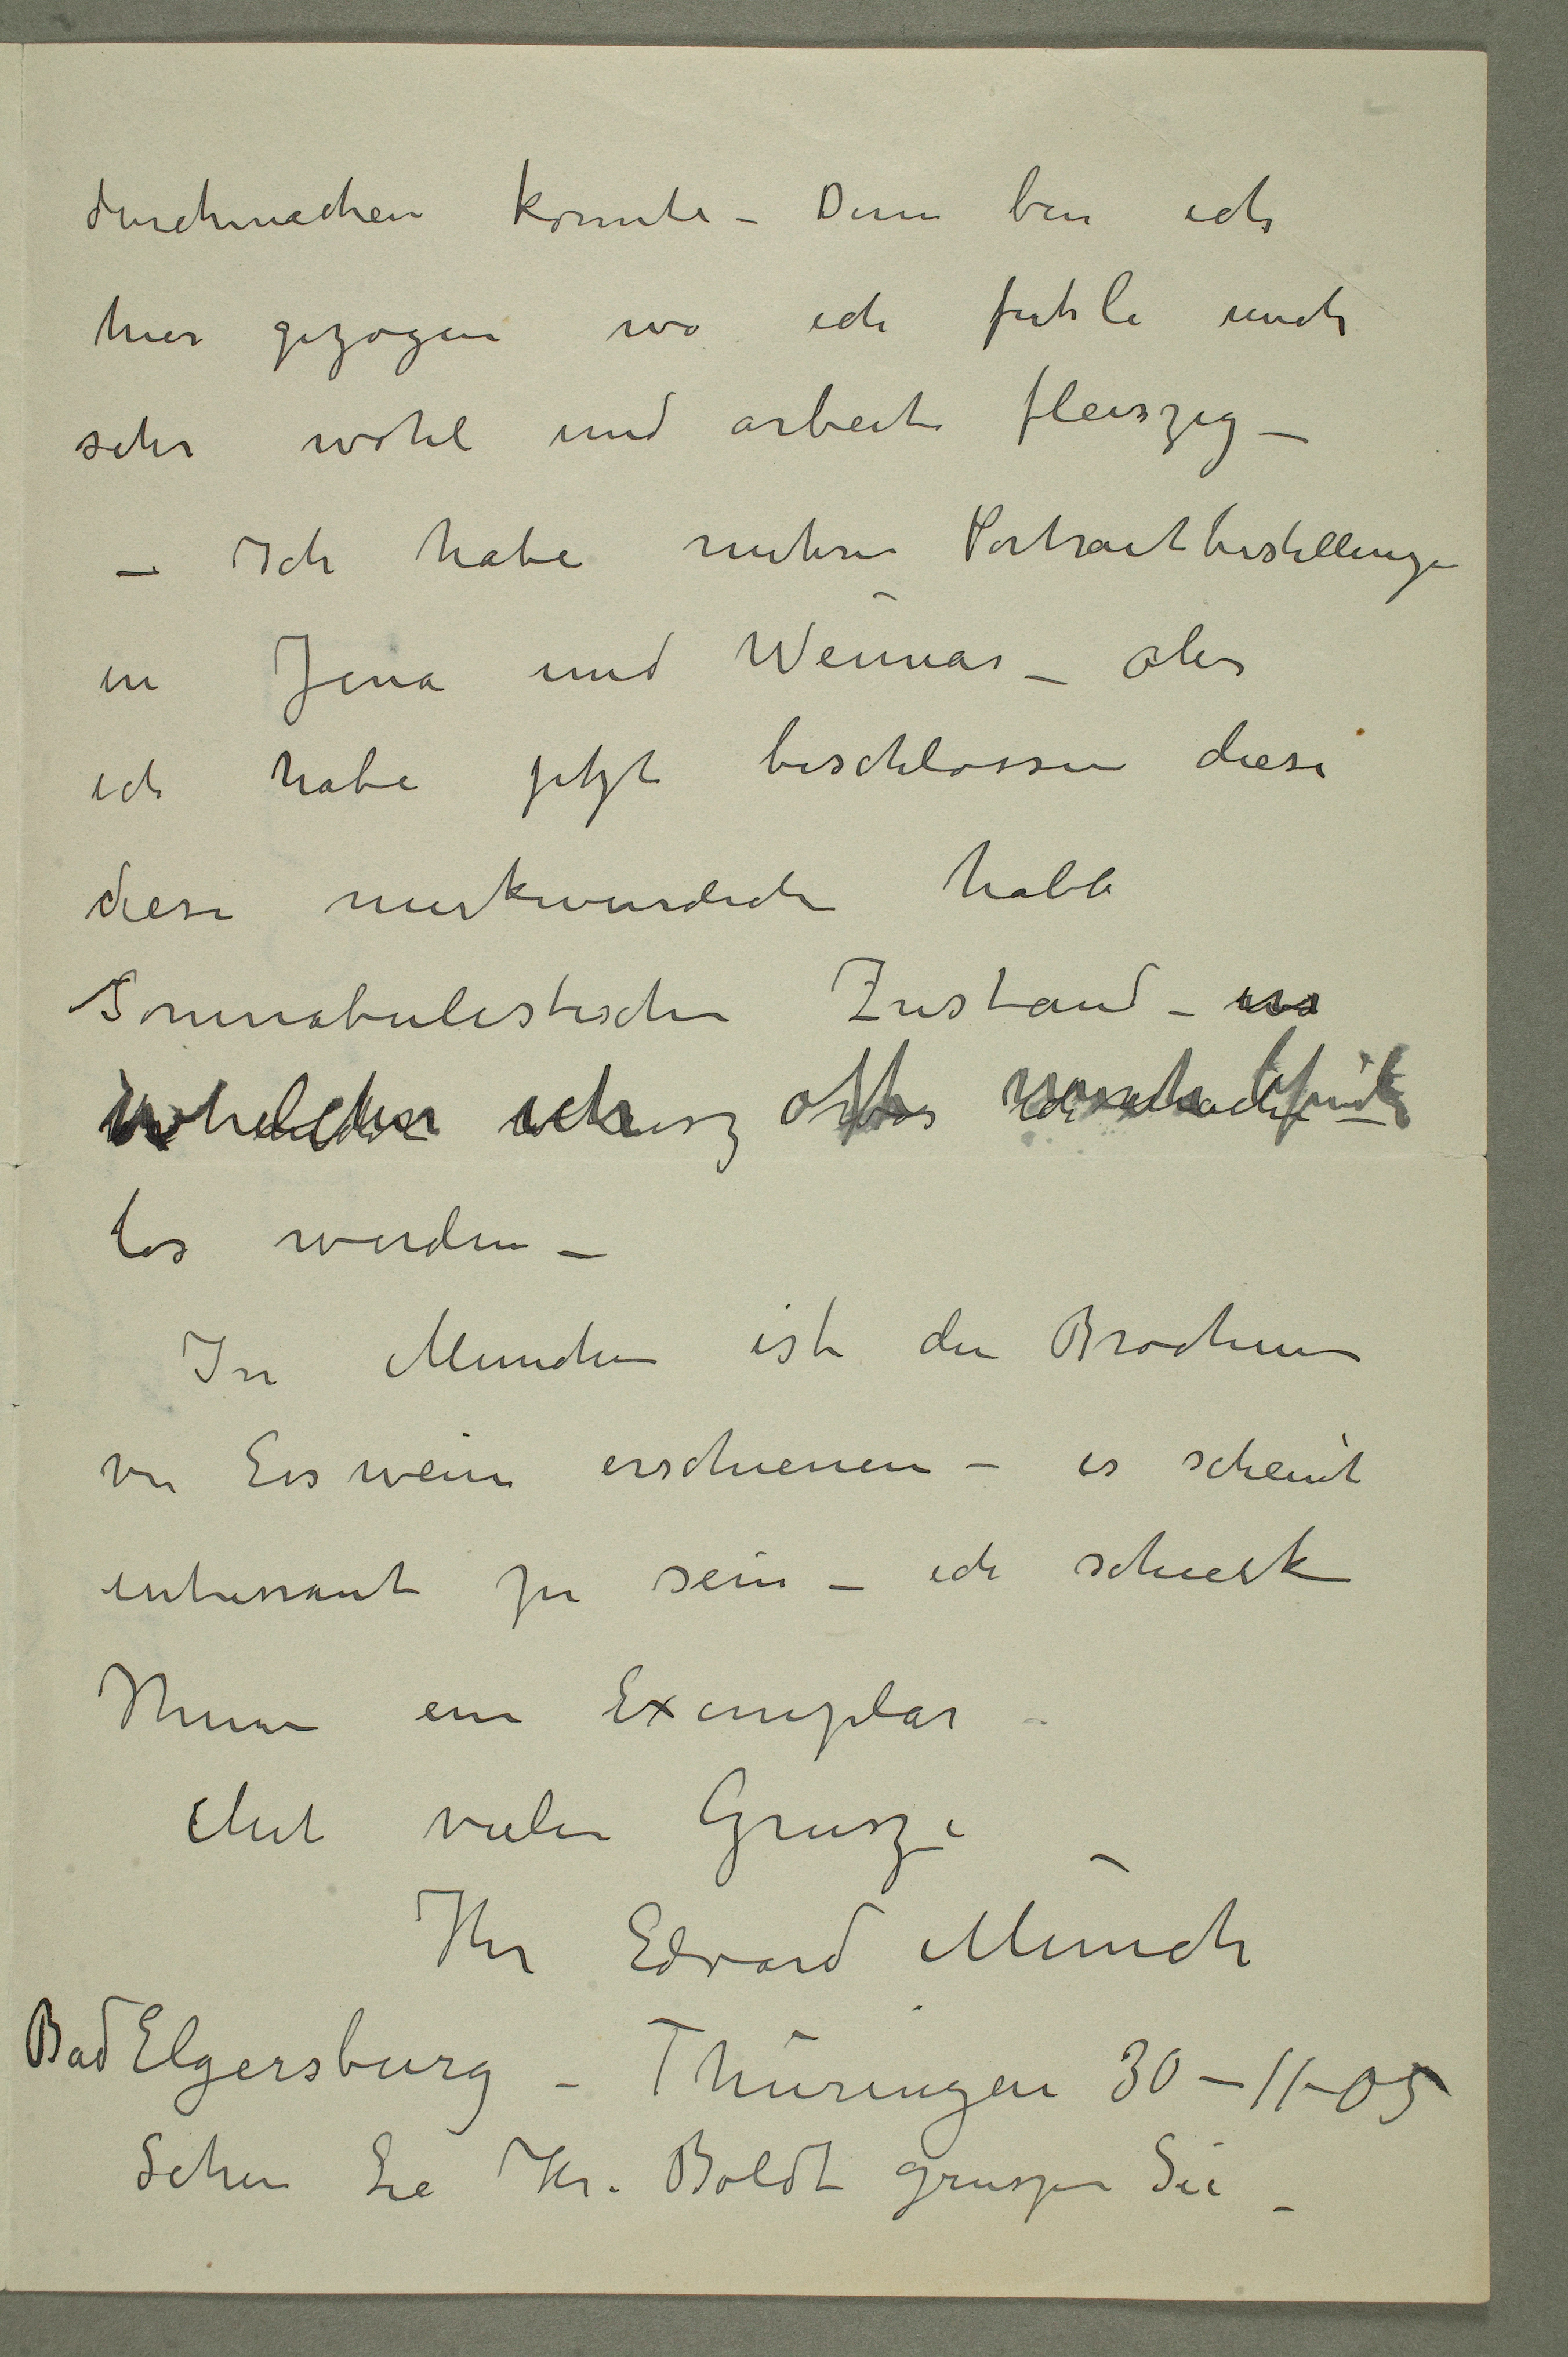 durchmachen konnte – Dann bin ich
hier gezogen wo ich fuhle mich
sehr wohl und arbeite fleiszig –
– Ich habe mehrere Portraitbestellungen
in Jena und Weimar – aber
ich habe jetzt beschlossen diese
diese merkwurdiche halb
Somnabulistische Zustand –
ich
los werden –
In Munchen ist die Brochure
von Esswein erschienen – es scheint
interessant zu sein – ich schicke
Ihnen ein Exemplar –
Mit vielen Grusze
Ihr Edvard Munch
Bad Elgersburg – Thüringen 30–11–05
Sehen Sie Hr. Boldt gruszen Sie –